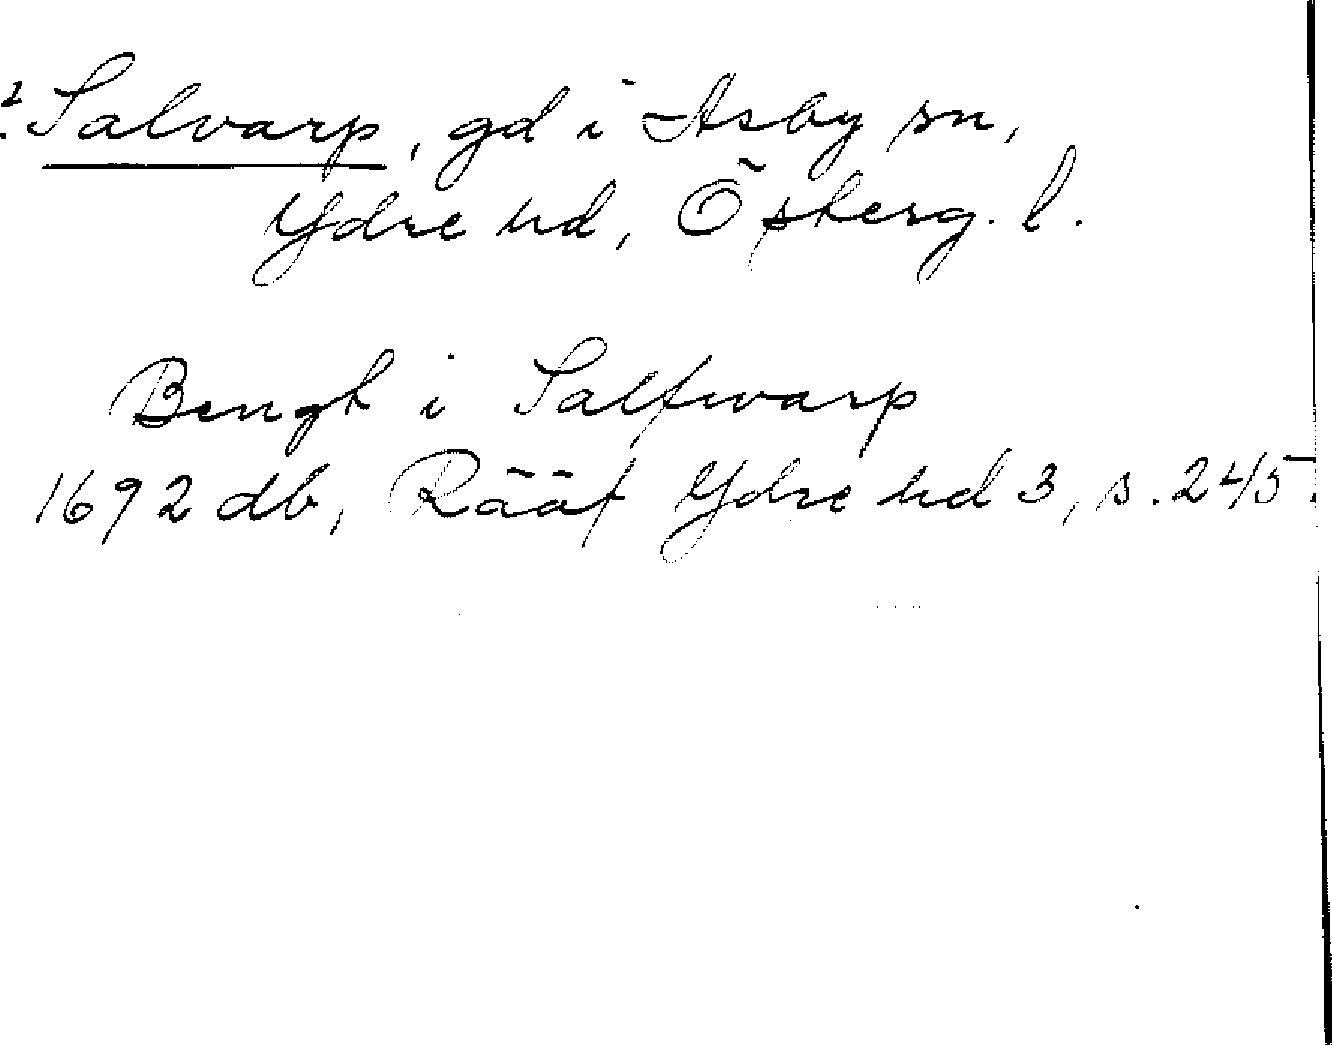 Salvarp, gd i Asby sn,
Ydre hd, Österg. l.
Bengt i Salfwarp
1692 db, Rääf Ydre hd 3, s. 245.